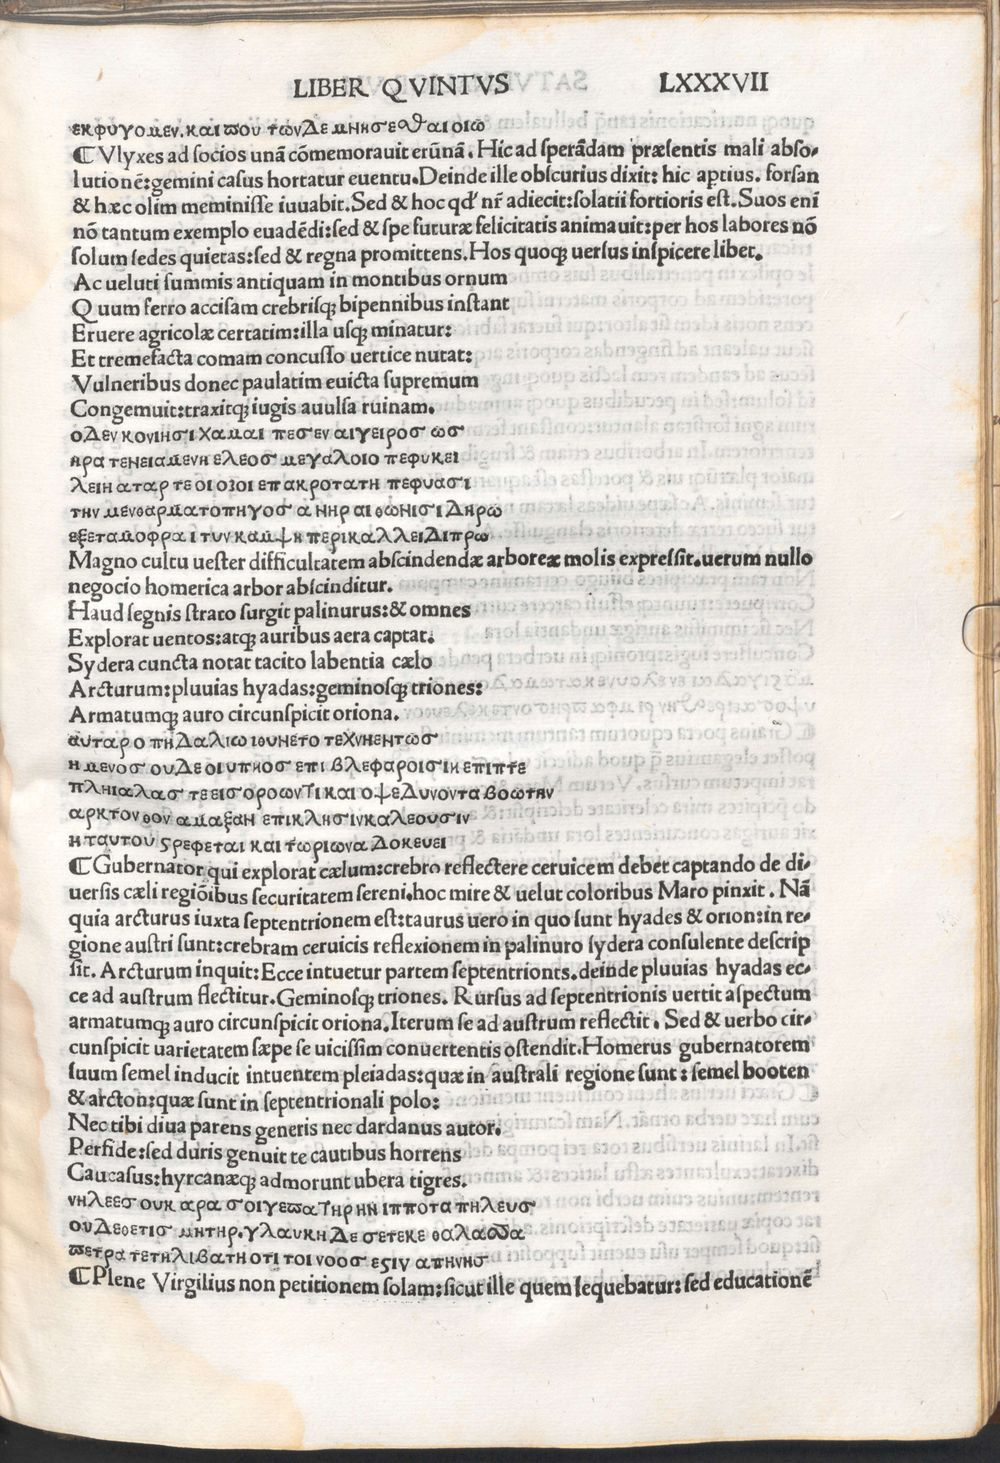 LIBER QVINTVS LXXXVII
εκφυγομεν. και που τωνΔε μνησεσθαι οιω
¶ Vlyxes ad socios unā cōmemorauit erūnā. Hic ad sperādam præsentis mali abso-
lutionē: gemini casus hortatur euentu. Deinde ille obscurius dixit: hic aptius. forsan
& hæc olim meminisse iuuabit. Sed & hoc qd' nr̄ adiecit: solatii fortioris est. Suos eni
nō tantum exemplo euadēdi: sed & spe futuræ felicitatis animauit: per hos labores nō
solum sedes quietas: sed & regna promittens. Hos quoq; uersus inspicere libet.
Ac ueluti summis antiquam in montibus ornum
Quum ferro accisam crebrisq; bipennibus instant
Eruere agricolæ certatim: illa usq; minatur:
Et tremefacta comam concusso uertice nutat:
Vulneribus donec paulatim euicta supremum
Congemuit: traxitq; iugis auulsa ruinam.
οΔεν κονιησι χαμαι πεσεν αιγειροσ ωσ
ηρα τενειαμενη ελεοσ μεγαλοιο πεφυκει
λειη αταρ τε οι οζοι επακροτατη πεφυασι
την μενθαρματοπηγοσ α νηρ αι θωνισι Δηρω
εξεταμοφρα ι τυν καμψη περικαλλειΔιπρω
Magno cultu uester difficultatem abscindendæ arboreæ molis expressit. uerum nullo
negocio homerica arbor abscinditur.
Haud segnis strato surgit palinurus: & omnes
Explorat uentos: atq; auribus aera captat.
Sydera cuncta notat tacito labentia cælo
Arcturum: pluuias hyadas: geminosq; triones:
Armatumq; auro circunspicit oriona.
αυταρ ο πηΔαλιω ιθυνετο τεχνηεντωσ
η μενοσ ουΔε οι υπνοσ επι βλεφαροισιν επιπτε
πληιαλασ τε εισοροωντι και οψε Δυνοντα βοωτην
αρκτον θον αμαξαν επικλησιν καλεουσιν
η ταυτου ϛρεφεται και τ' ωριωνα Δοκευει
¶ Gubernator qui explorat cælum: crebro reflectere ceruicem debet captando de di-
uersis cæli regiōibus securitatem sereni. hoc mire & uelut coloribus Maro pinxit. Nā
quia arcturus iuxta septentrionem est: taurus uero in quo sunt hyades & orion: in re-
gione austri sunt: crebram ceruicis reflexionem in palinuro sydera consulente descrip
sit. Arcturum inquit: Ecce intuetur partem septentrionts. deinde pluuias hyadas ec-
ce ad austrum flectitur. Geminosq; triones. Rursus ad septentrionis uertit aspectum
armatumq; auro circunspicit oriona. Iterum se ad austrum reflectit. Sed & uerbo cir-
cunspicit uarietatem sæpe se uicissim conuertentis ostendit. Homerus gubernatorem
suum semel inducit intuentem pleiadas: quæ in australi regione sunt: semel booten
& arcton: quæ sunt in septentrionali polo:
Nec tibi diua parens generis nec dardanus autor.
Perfide: sed duris genuit te cautibus horrens
Caucasus: hyrcanæq; admorunt ubera tigres.
νηλεεσ ουκ αρα σοιγεπατηρ ην ιπποτα πηλευσ
ουΔεθετισ μητηρ. γλαυκη Δε σετεκε θαλασσα
πετρα τετηλιβατη οτι τοι νοοσ εϛιν απηνησ
¶ Plene Virgilius non petitionem solam: sicut ille quem sequebatur: sed educationē